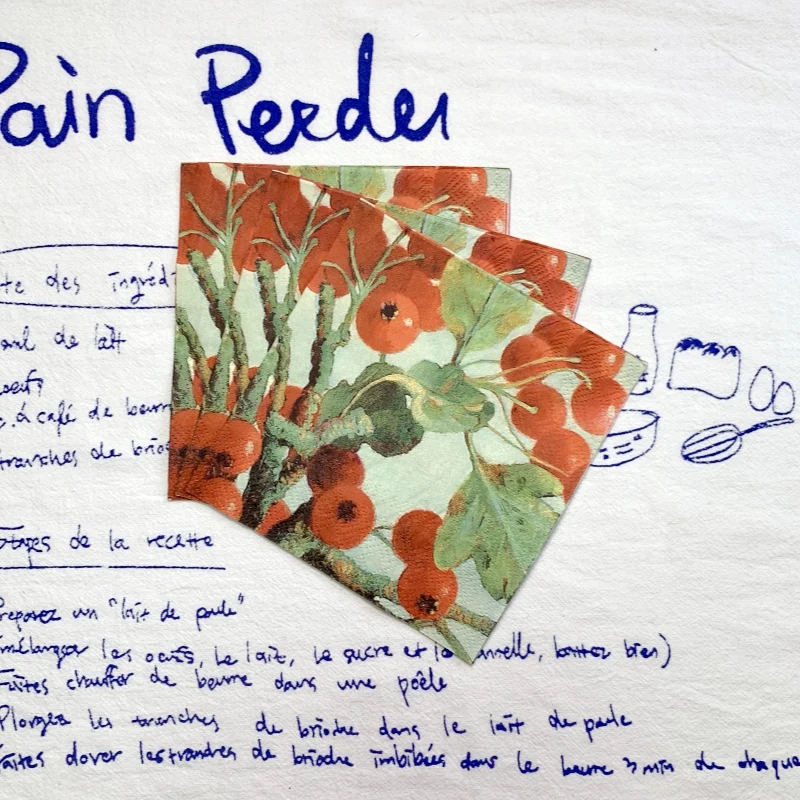 Pain Perdu
te des ingrédi
ml de lait
oeufs
c. à café de beurre
tranches de brio
Étapes de la recette
Preparez un "lait de poule"
mélanger les oeufs, le lait, le sucre et la cannelle, battez bien)
Faites chauffer de beurre dans une poêle
Plongez les tranches de brioche dans le lait de poule
Faites dorer les tranches de brioche imbibées dans le beurre 3 min de chaque